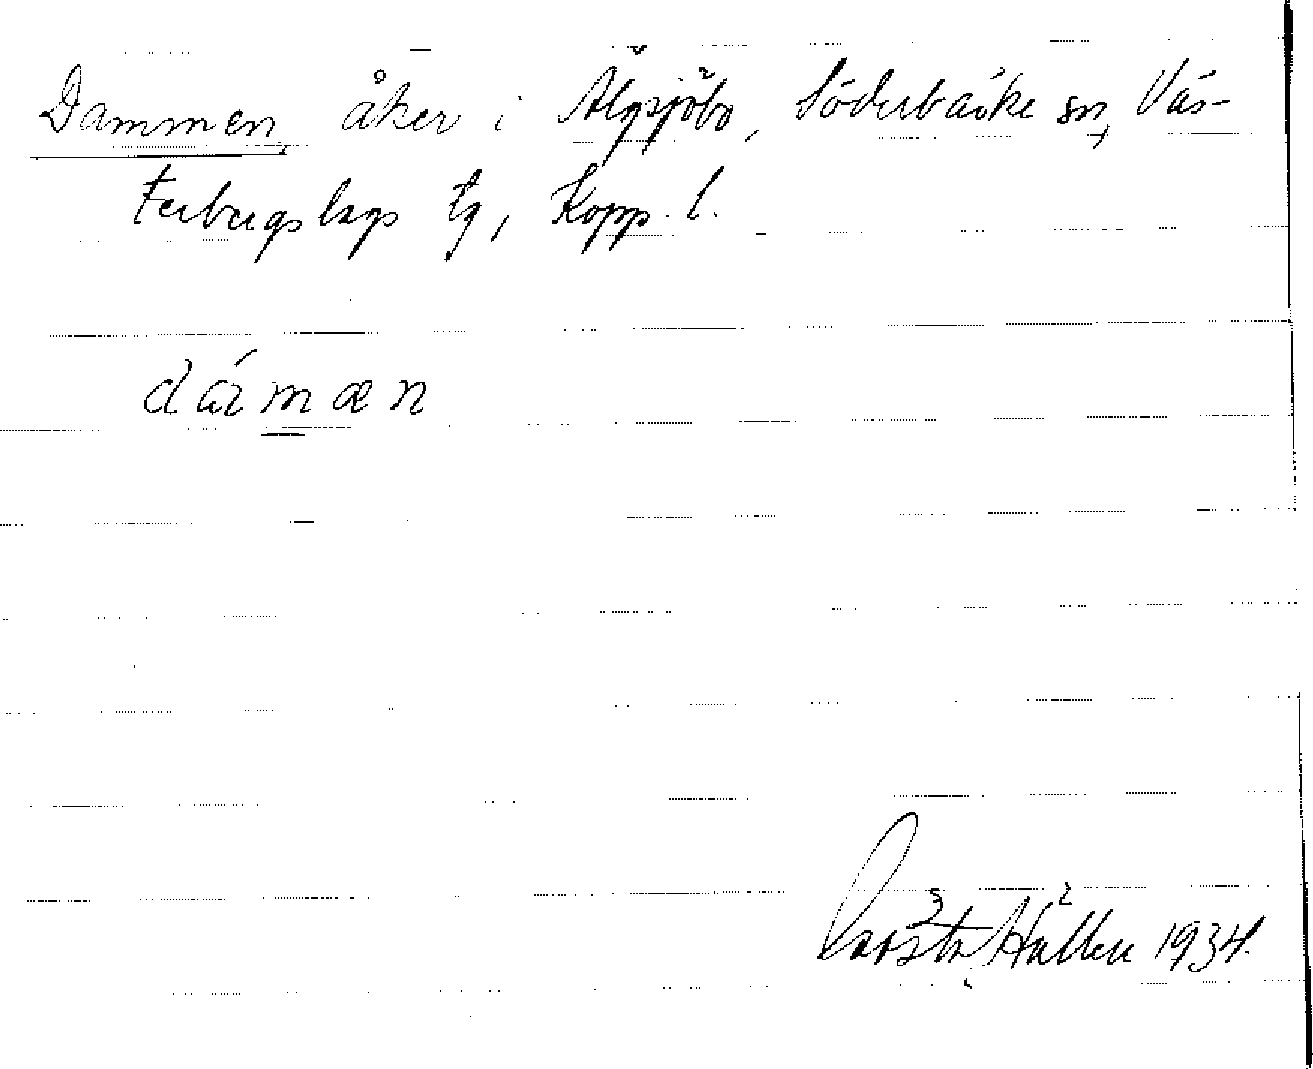 Dammen, åker i Älgsjöbo, Söderbärke sn, Väs-
terbergslags tg, Kopp. l.
dámæn
Hållén 1934.